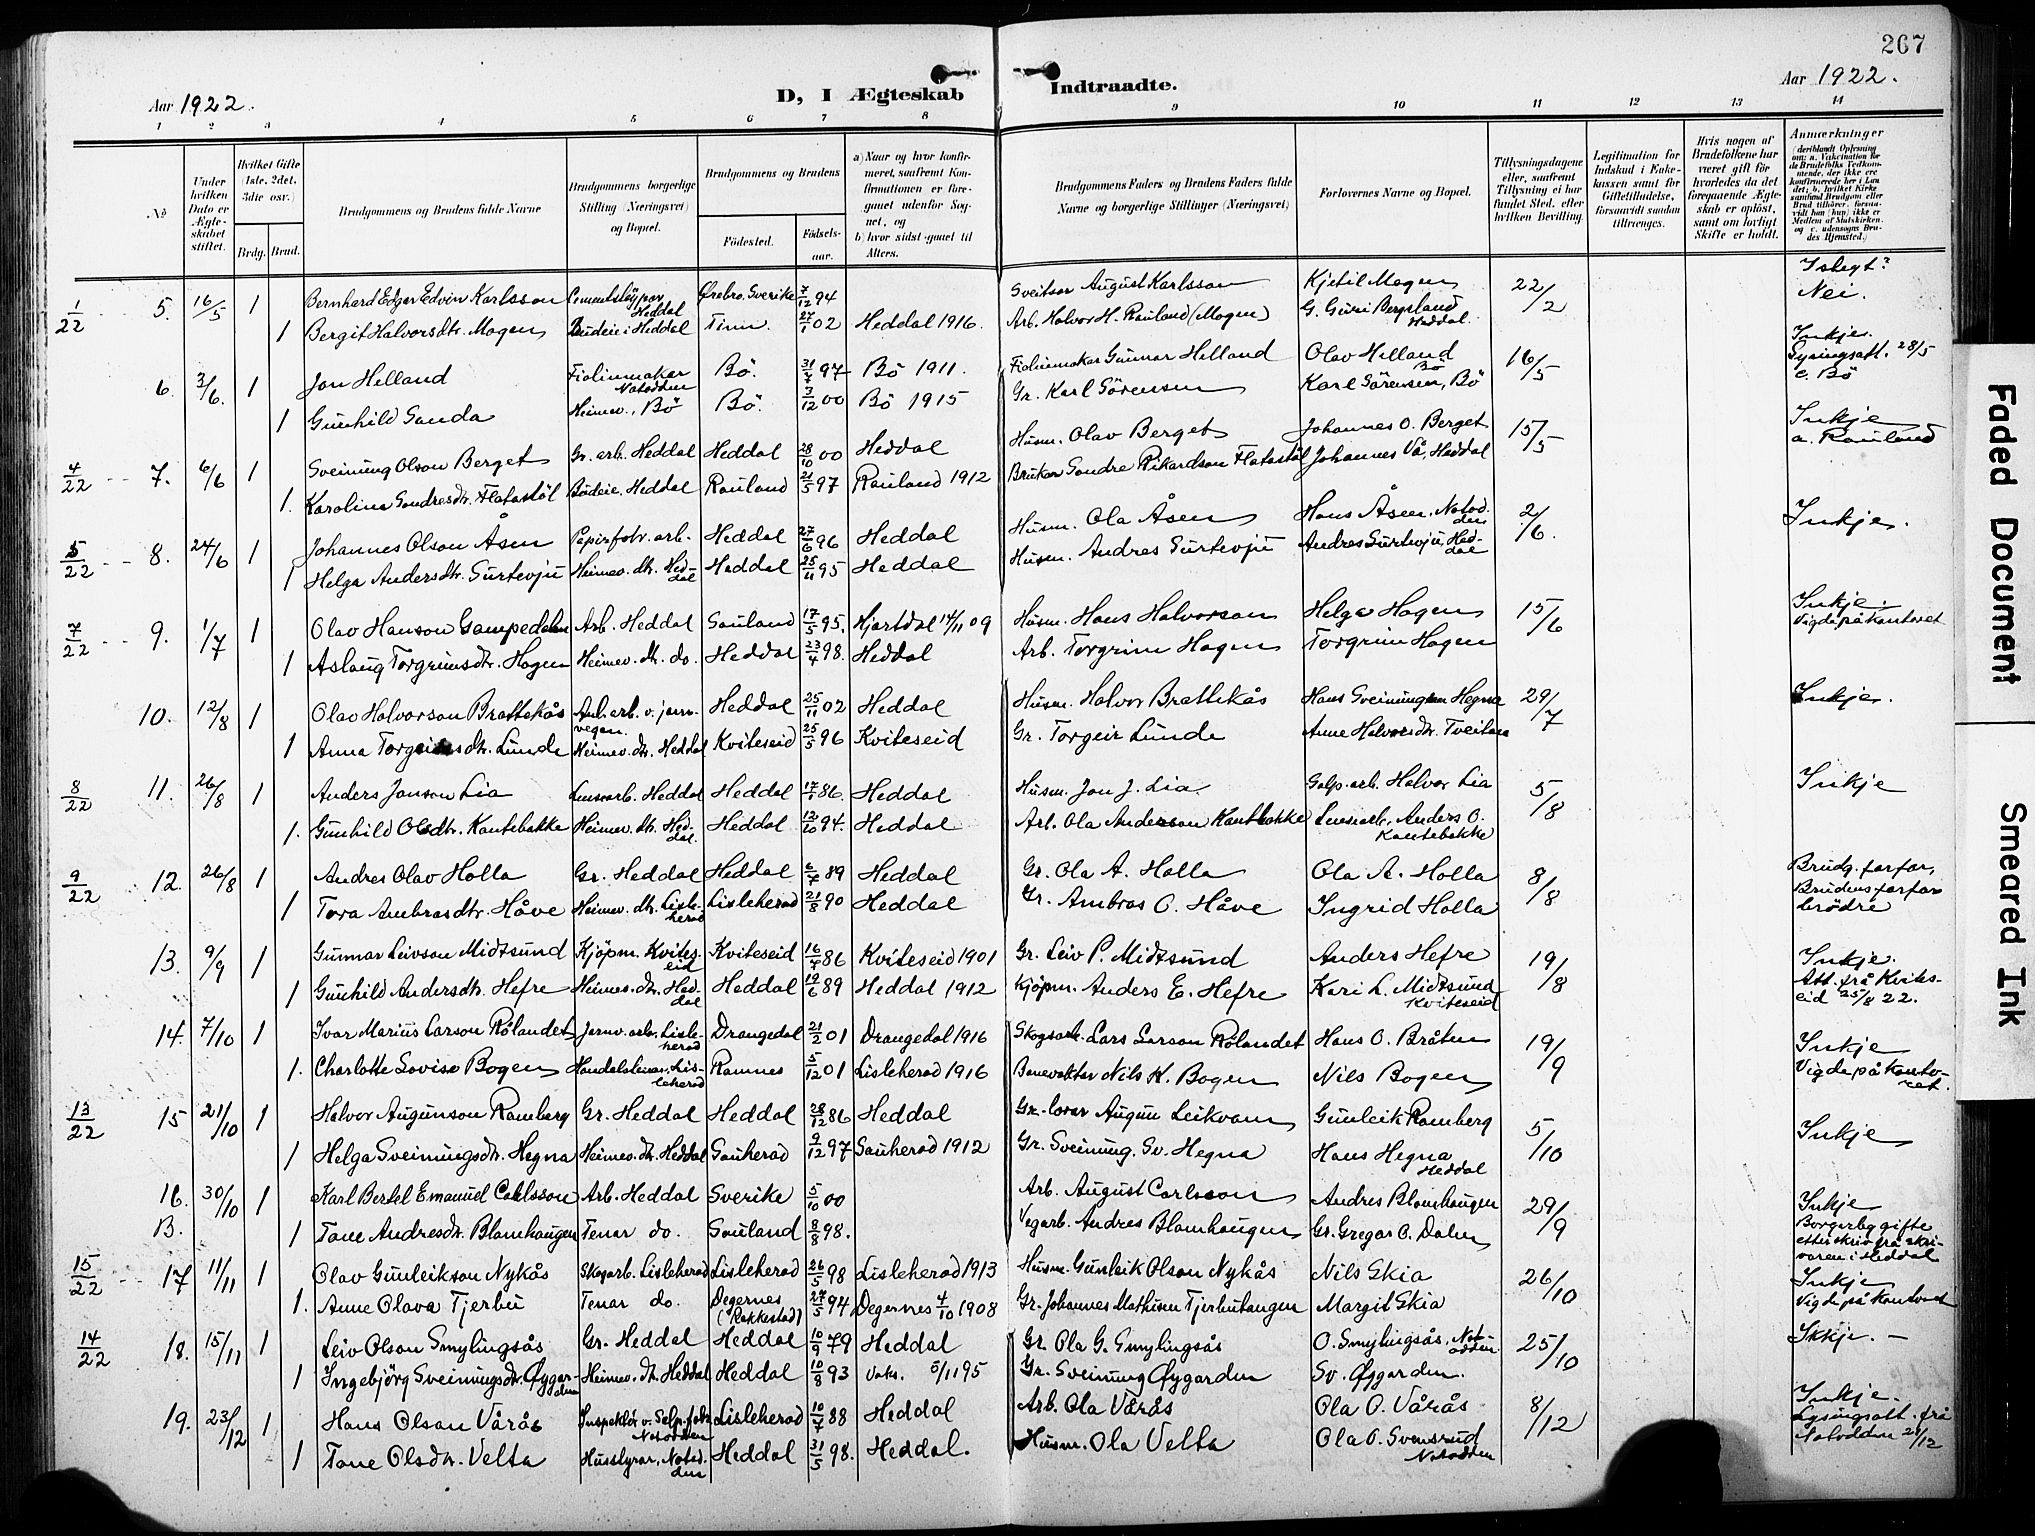 267
Aar 1922.
D, I Ægteskab Indtraadte.
Aar 1922.
1 2 3 4 5 6 7 8 9 10 11 12 13 14
No
Under hvilken Dato er Ægteskabet stiftet.
Hvilket Gifte (1ste, 2det, 3die osv.)
Brdg. Brud.
Brudgommens og Brudens fulde Navne
Brudgommens borgerlige Stilling (Næringsvei) og Bopæl.
Brudgommens og Brudens
Födested.
Födselsaar.
a) Naar og hvor konfirmeret, saafremt Konfirmationen er foregaaet udenfor Sognet, og
b) hvor sidst gaaet til Alters.
Brudgommens Faders og Brudens Faders fulde Navne og borgerlige Stillinger (Næringsvei)
Forlovernes Navne og Bopæl.
Tillysningsdagene eller, saafremt Tillysning ei har fundet Sted, efter hvilken Bevilling.
Legitimation for Indskud i Enkekassen samt for Giftetilladelse, forsaavidt saadan tiltrænges.
Hvis nogen af Brudefolkene har været gift för hvorledes da det foregaaende Ægteskab er oplöst, samt om lovligt Skifte er holdt.
Anmærkninger
(deriblandt Oplysning om: a. Vakcination for de Brudefolks Vedkommende, der ikke ere konfirmerede her i Landet; b. hvilket Kirkesamfund Brudgom eller Brud tilhörer, forsaavidt han (hun) ikke er Medlem af Statskirken, og c. udensogns Brudes Hjemsted.)
I slegt?
1/22 5. 16/5 1 Bernhard Edgar Edvin Karlsson Cementstøypar Heddal Ørebro. Sverike 7/12 94 Sveitser August Karlsson Kjetil Mogen 22/2 Nei.
1 Bergit Halvorsdtr. Mogen Budeie i Heddal Tinn 27/1 02 Heddal 1916. Arb. Halvor H. Rauland (Mogen) G. Guri Bergsland Heddal
6. 3/6. 1 Jon Helland Fiolinmakar Notodden Bö. 31/7 97 Bö 1911. Fiolinmakar Gunnar Helland Olav Helland Bö 16/5 Inkje. Lysingsatt. 28/5 c. Bö
1 Gunhild Sanda Heimev., Bö Bö. 3/12 00 Bö 1915 Gr. Karl Sörensen Karl Sörensen, Bö
4/22 7. 6/6 1 Sveinung Olson Berget Gr. arb. Heddal Heddal 28/10 00 Heddal Husm. Olav Berget Johannes O. Berget 15/5 Inkje a. Rauland
1. Karolina Sondresdtr. Flatastöl Budeie, Heddal Rauland 21/5 97 Rauland 1912 Brukar Sondre Rikardson Flatastöl Johannes Vå, Heddal
5/22 8. 24/6 1 Johannes Olson Åsen Papirfabr. arb. Heddal 27/6 96 Heddal Husm. Ola Åsen Hans Åsen, Notodden 2/6. Inkje.
1 Helga Andersdtr. Surtevju Heimev. dtr. Heddal Heddal 25/11 95 Heddal Husm. Andres Surtevju Andres Surtevju, Heddal
7/22 9. 1/7 1 Olav Hanson Gampedalen Arb. Heddal Sauland 17/5 95. Hjartdal 14/11 09 Husm. Hans Halvorson Helge Hagen 15/6 Inkje. Vigde på kontoret
1 Aslaug Torgrimsdtr. Hagen Heimev. dtr. do. Heddal 23/4 98. Heddal Arb. Torgrim Hagen Torgrim Hagen
10. 12/8 1 Olav Halvorson Brattekås Anl. arb. v. jernvegen. Heddal 25/11 02 Heddal Husm. Halvor Brattekås Hans Sveinungson Hegna 29/7 Inkje.
1 Anna Torgeirsdtr. Lunde Heimev. dtr. Heddal Kviteseid 25/5 96 Kviteseid Gr. Torgeir Lunde Anne Halvorsdtr. Tveitane
8/22 11. 26/8 1 Anders Jonson Lia Lensearb. Heddal Heddal 17/1 86. Heddal Husm. Jon J. Lia Salp. arb. Halvor Lia 5/8 Inkje
1. Gunhild Olsdtr. Kantebakke Heimev. dtr. Heddal. Heddal 12/10 94. Heddal Arb. Ola Anderson Kantbakke Lensearb, Anders O. Kantebakke
9/22 12. 26/8 1 Andres Olav Holla Gr. Heddal Heddal 6/7 89 Heddal Gr. Ola A. Holla Ola A. Holla 8/8 Brudg. farfar, Brudens farfar brödre
1 Tora Ambrosdtr. Håve Heimev. dtr. Lisleherad Lisleherad 21/8 90 Heddal Gr. Ambros O. Håve Ingrid Holla
13. 9/9 1 Gunnar Leivson Midtsund Kjöpm. Kviteseid Kviteseid 16/7 86 Kviteseid 1901 Gr. Leiv P. Midtsund Anders Hefre 19/8 Inkje. Att. frå Kviteseid 25/8 22.
1 Gunhild Andersdtr. Hefre Heimev. dtr. Heddal Heddal 19/6 89 Heddal 1912 Kjöpm. Anders E. Hefre Kari L. Midtsund Kviteseid
14. 7/10 1 Ivar Marius Larson Rölandet Jernv. arb. Lisleherad Drangedal 21/2 01 Drangedal 1916 Skogsarb. Lars Larson Rölandet Hans O. Bråten 19/9 Inkje Vigde på kontoret.
1. Charlotte Lovise Bogen Handelsleiar, Lisleherad Ramnes 5/12 01 Lisleherad 1916 Banevakter Nils K. Bogen Nils Bogen
13/22 15 21/10 1 Halvor Augunson Ramberg Gr. Heddal Heddal 28/12 86 Heddal Gr. Augun Leikvam Gunleik Ramberg 5/10 Inkje
1 Helga Sveinungsdtr. Hegna Heimev. dtr. Heddal Sauherad 9/12 97 Sauherad 1912 Gr. Sveinung. Sv. Hegna Hans Hegna Heddal
16. B. 30/10 1 Karl Bertel Emanuel Carlsson Arb. Heddal Sverike 5/10 00 Arb. August Carlsson Andres Blomhaugen 29/9 Inkje Borgerleg gifte etter skriv frå skrivaren i Heddal
1 Tone Andresdtr. Blomhaugen Tenar do. Sauland 8/8 98. Vegarb. Andres Blomhaugen Gr. Gregar O. Dalen
15/22 17 11/11 1 Olav Gunleikson Nykås Skogarb. Lisleherad Lisleherad 26/5 98 Lisleherad 1913 Husm. Gunleik Olson Nykås Nils Skia 26/10 Inkje Vigde på kontoret
1. Anne Olava Tjerbu Tenar do. Degernes (Rakkestad) 27/5 94 Degernes 4/10 1908 Gr. Johannes Mathisen Tjerbutangen Margit Skia
14/22 18. 15/11 1 Leiv Olson Smylingsås Gr. Heddal Heddal 10/9 79 Heddal Gr. Ola G. Smylingsås O. Smylingsås. Notodden 25/10 Ikkje. —
1 Ingebjörg Sveinungsdtr. Øygarden Heimev. dtr. Heddal Heddal 10/8 93 Vaks. 5/11 95 Gr. Sveinung Øygarden Sv. Øygarden.
19. 23/12 1 Hans Olson Vårås Inspektör v. Salp. fabr. Notodden Lisleherad 10/7 88 Heddal Arb. Ola Vårås Ola O. Vårås 8/12 Inkje. Lysingsatt. frå Notodden 21/12
1 Tone Olsdtr. Velta Husstyrar, Notodden Heddal 31/5 98. Heddal. Husm. Ola Velta Ola O. Svensrud Notodden
Faded Document
Smeared Ink